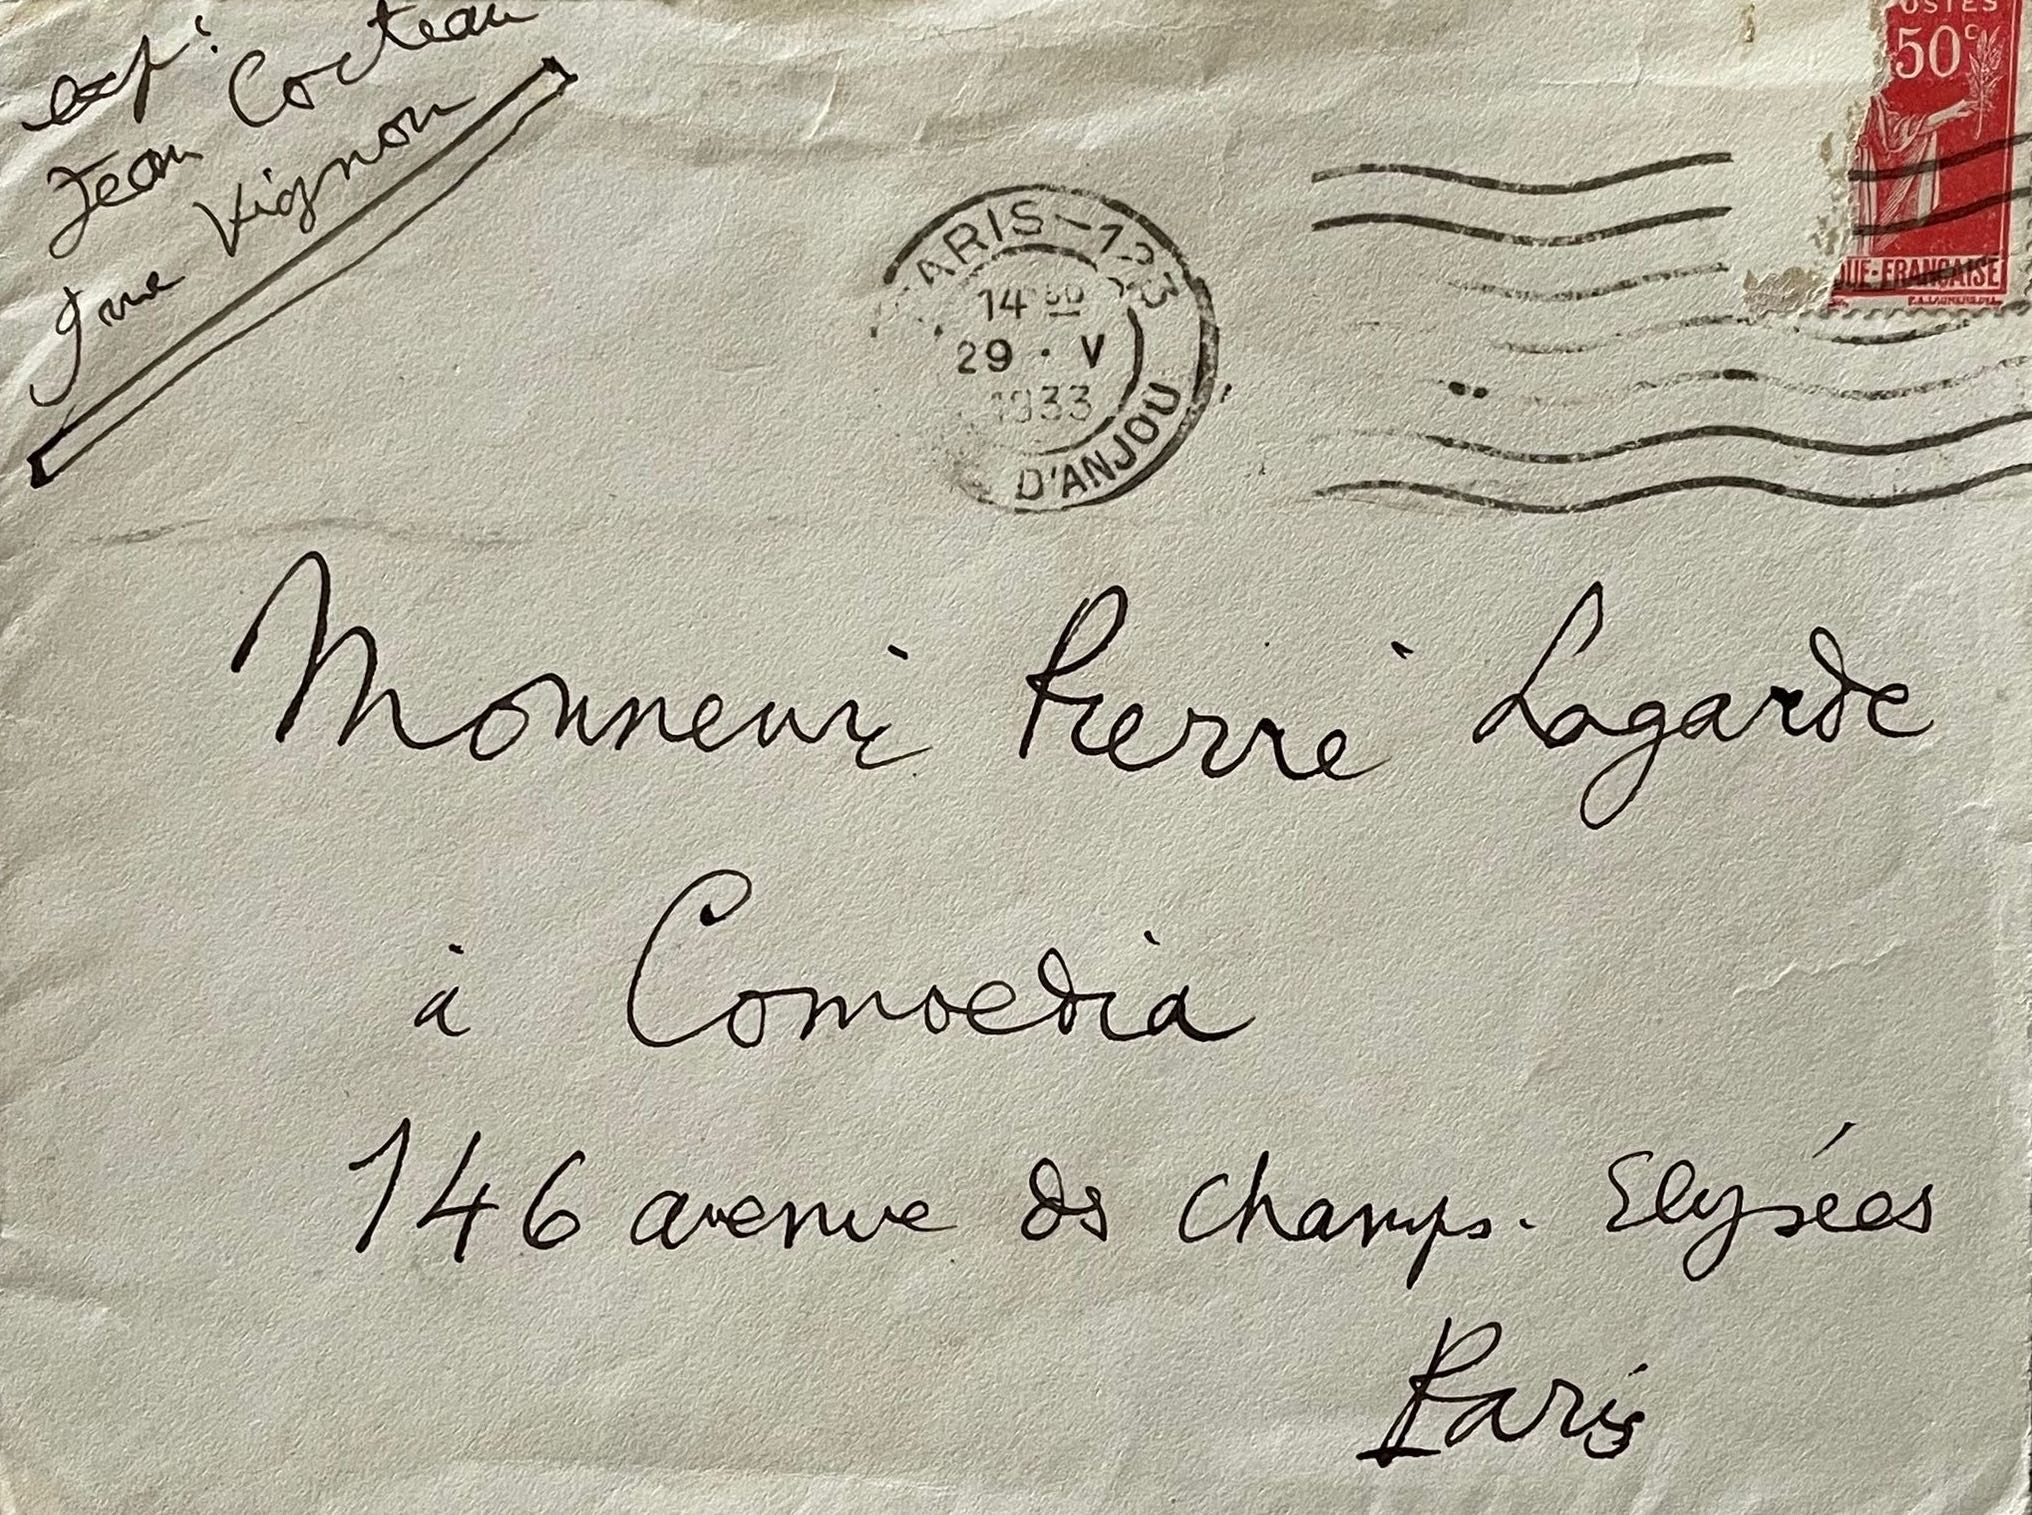 exp:
Jean Cocteau
9 rue Vignon
PARIS-123
14 30
29 · V
1933
D'ANJOU
POSTES
50c
QUE-FRANÇAISE
Monsieur Pierre Lagarde
à Comoedia
146 avenue ds Champs-Elysées
Paris